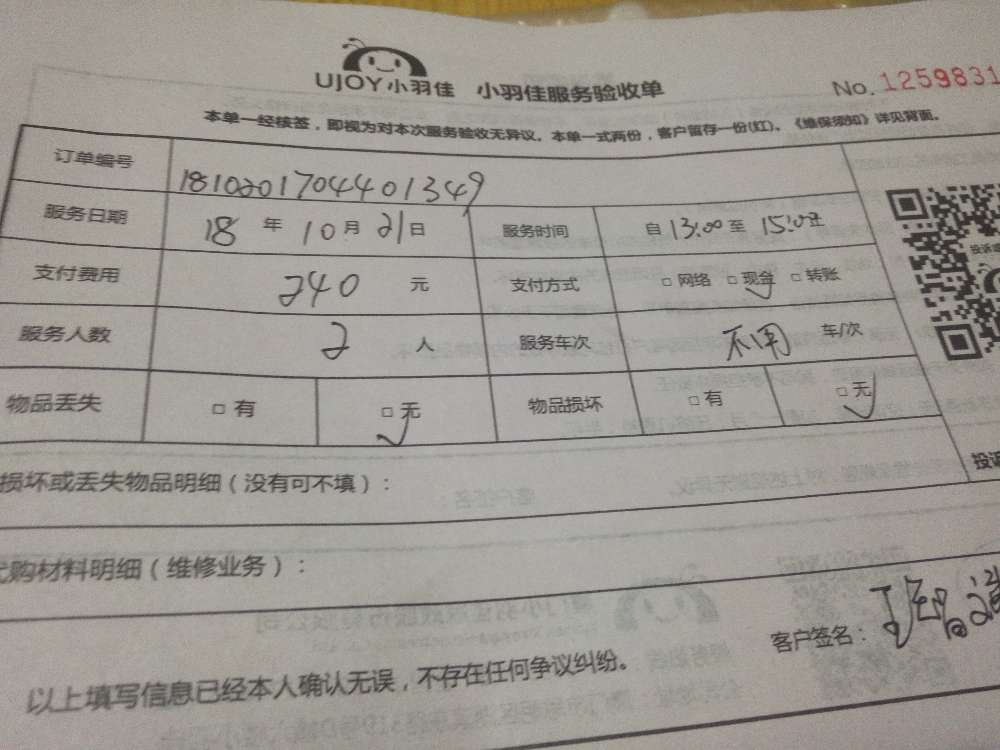 UJOY小羽佳 小羽佳服务验收单 No. 1259831
本单一经核签，即视为对本次服务验收无异议。本单一式两份，客户留存一份(红)。《维保须知》详见背面。
订单编号 1810201704401349
服务日期 18 年 10 月 21 日 服务时间 自 13:00 至 15:00
支付费用 240 元 支付方式 □ 网络 □ 现金 □ 转账
服务人数 2 人 服务车次 不用 车/次
物品丢失 □ 有 □ 无 物品损坏 □ 有 □ 无
损坏或丢失物品明细（没有可不填）：
代购材料明细（维修业务）：
客户签名：
以上填写信息已经本人确认无误，不存在任何争议纠纷。